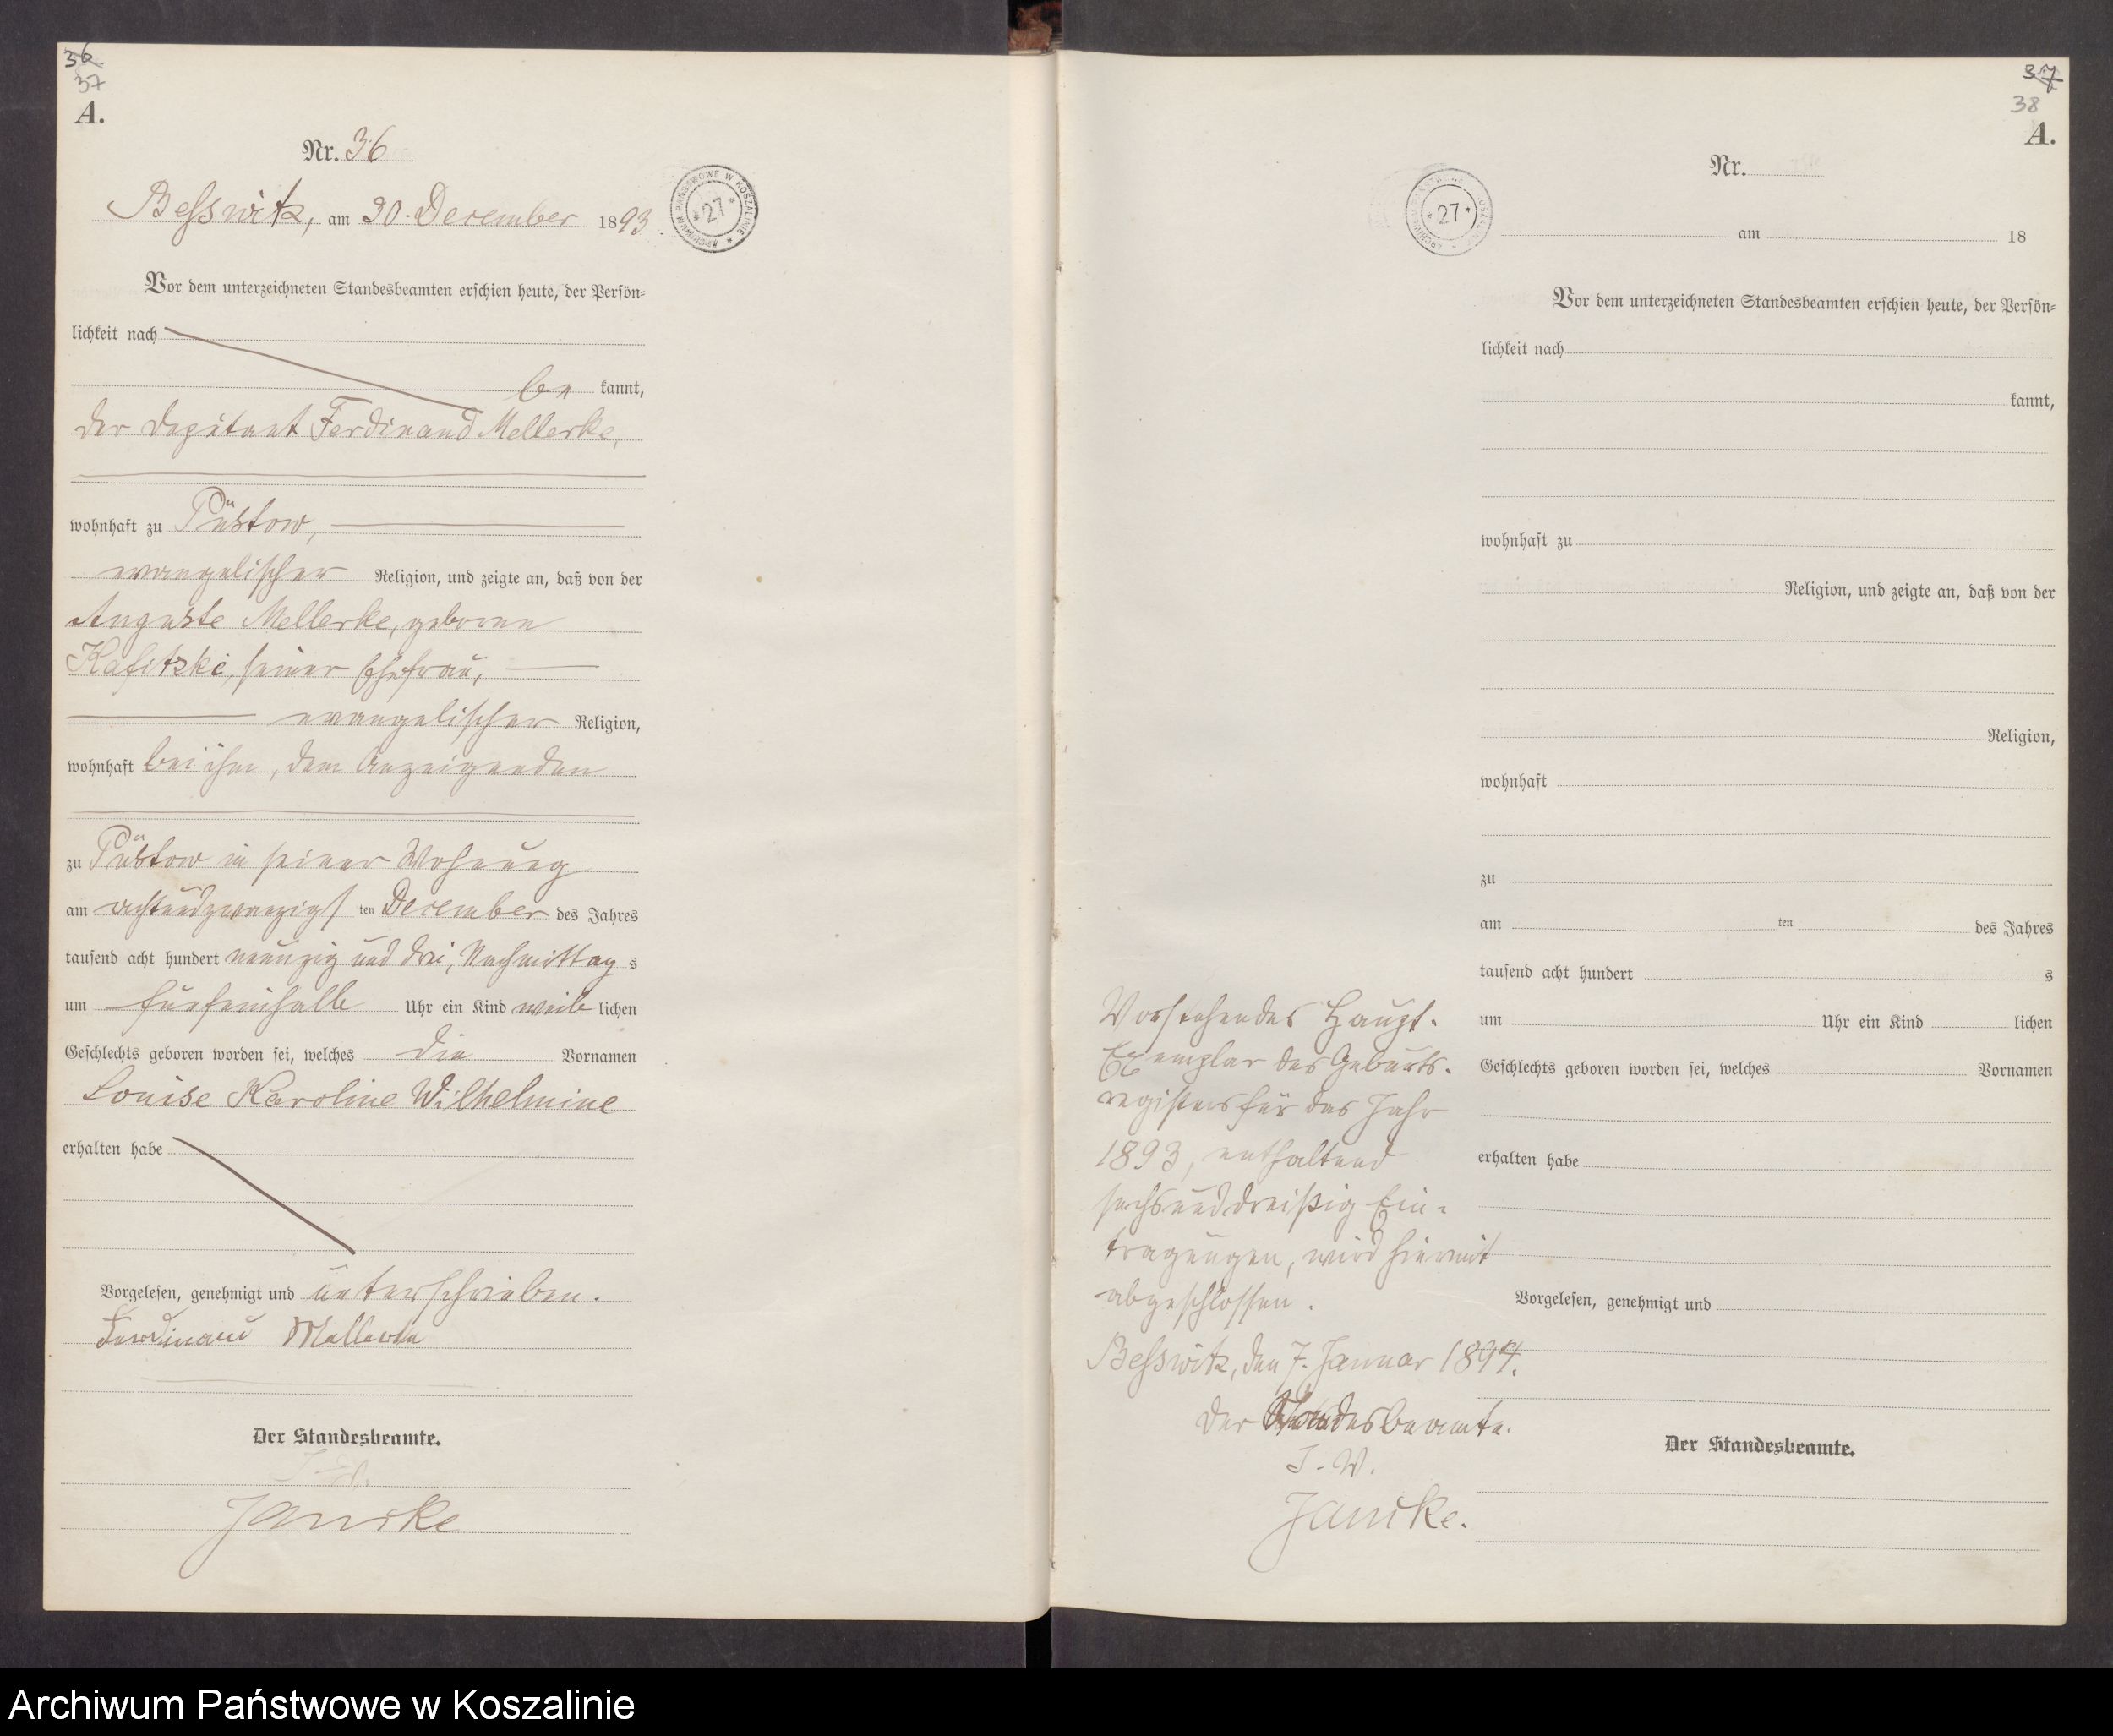 36
37
A.
Nr. 36
Besswitz, am 30. December 1893.
ARCHIWUM PAŃSTWOWE W KOSZALINIE * 27 *
Vor dem unterzeichneten Standesbeamten erschien heute, der Persön=
lichkeit nach
be kannt,
der Deputant Ferdinand Mellerke,
wohnhaft zu Püstow,
evangelischer Religion, und zeigte an, daß von der
Auguste Mellerke, geborene
Kafitzki, seiner Ehefrau,
evangelischer Religion,
wohnhaft bei ihm, dem Anzeigenden
zu Püstow in seiner Wohnung
am achtundzwanzigs ten December des Jahres
tausend acht hundert neunzig und drei, Nachmittag s
um fünfeinhalb Uhr ein Kind weib lichen
Geschlechts geboren worden sei, welches die Vornamen
Louise Karoline Wilhelmine
erhalten habe
Vorgelesen, genehmigt und unterschrieben.
Ferdinand Mellerke
Der Standesbeamte.
Jancke
37
38
A.
Nr.
* 27 *
am 18
Vor dem unterzeichneten Standesbeamten erschien heute, der Persön=
lichkeit nach
kannt,
wohnhaft zu
Religion, und zeigte an, daß von der
Religion,
wohnhaft
zu
am ten des Jahres
tausend acht hundert s
um Uhr ein Kind lichen
Geschlechts geboren worden sei, welches Vornamen
erhalten habe
Vorgelesen, genehmigt und
Der Standesbeamte.
Vorstehendes Haupt-
Exemplar des Geburts-
registers für das Jahr
1893, enthaltend
sechsunddreißig Ein-
tragungen, wird hiermit
abgeschlossen.
Besswitz, den 7. Januar 1894.
Der Standesbeamte.
J. V.
Jancke.
Archiwum Państwowe w Koszalinie